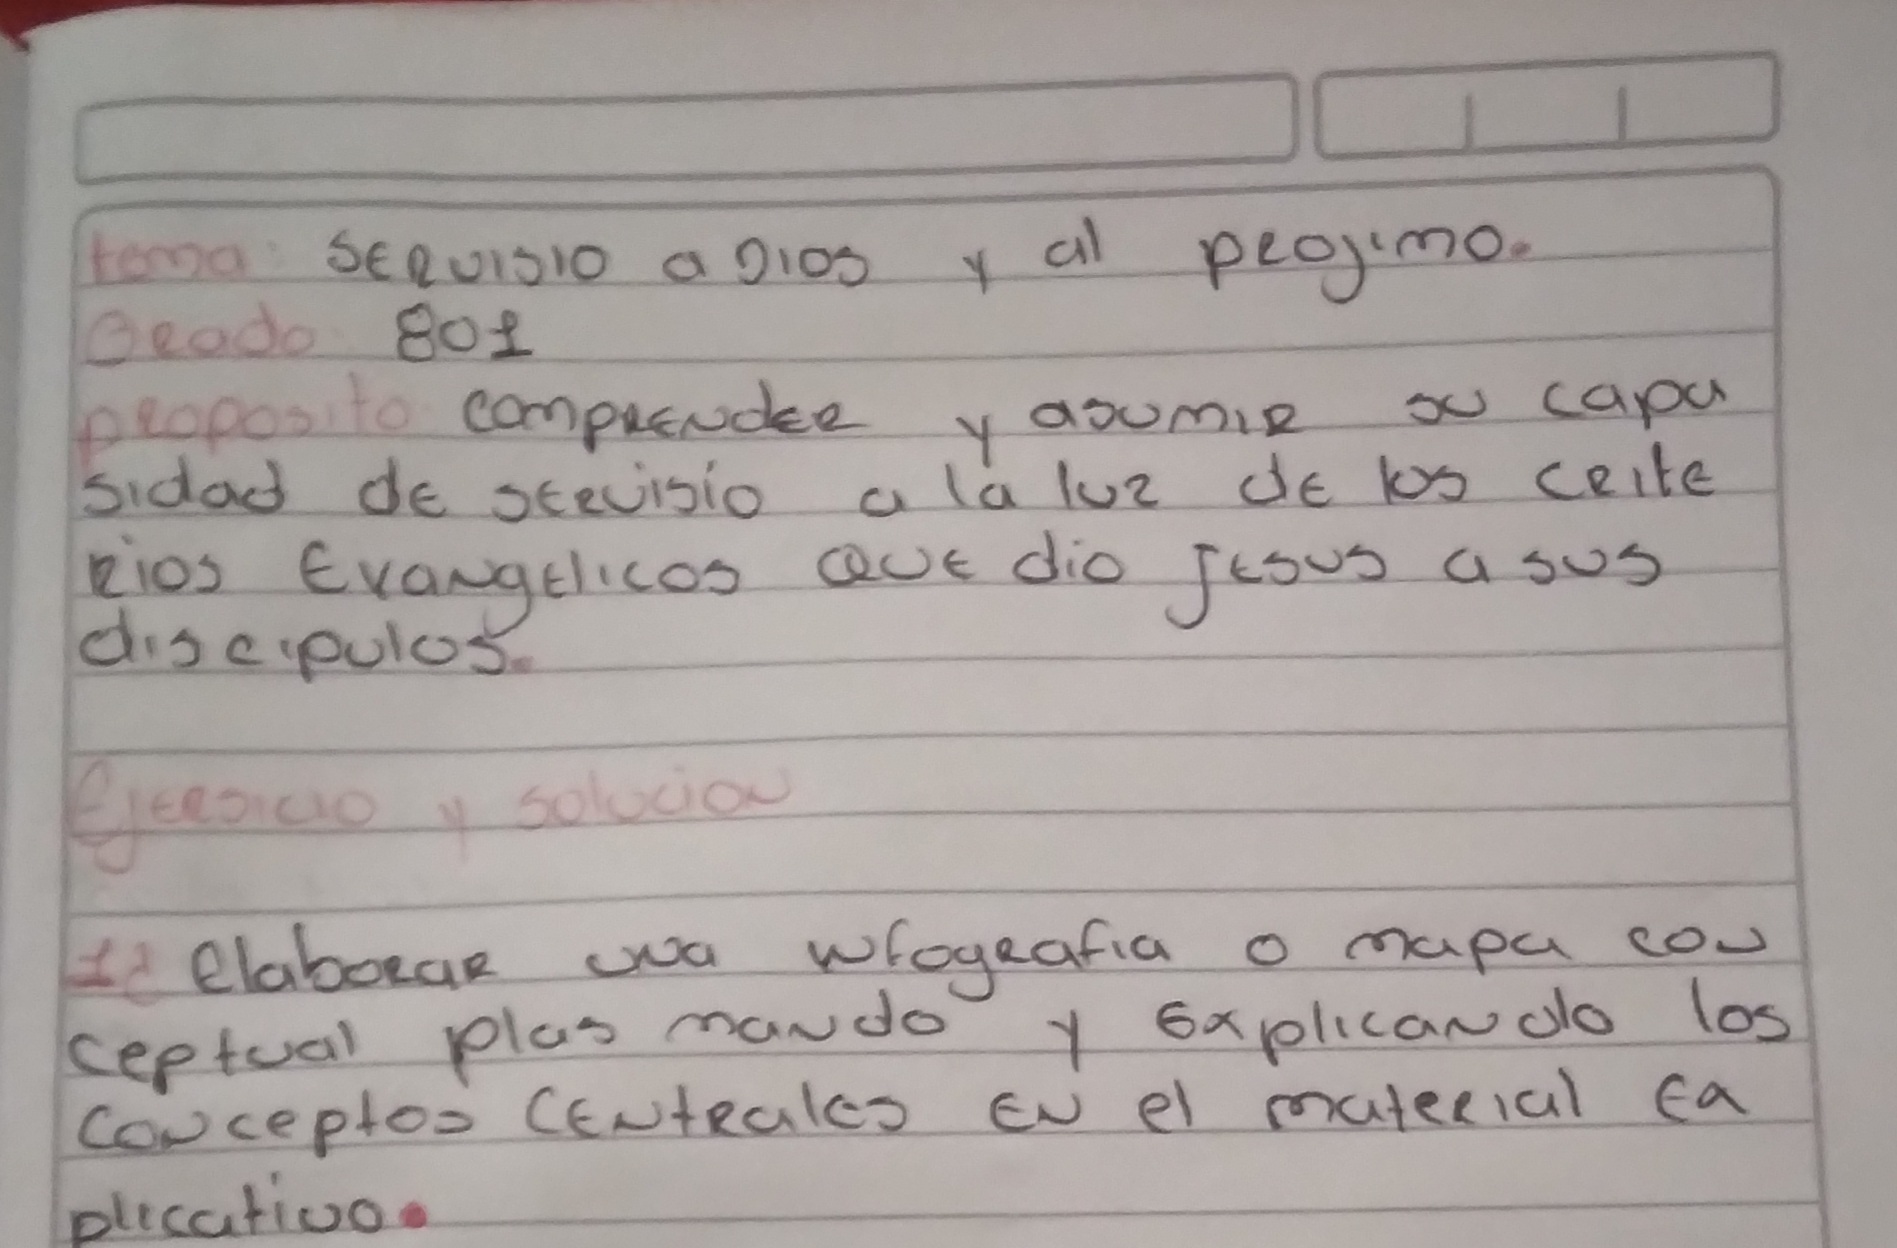 tema: SERVISIO a DIOS y al projimo.
Grado: 801
proposito: comprender y asumir su capa
sidad de servisio a la luz de los crite
rios Evangelicos que dio Jesus a sus
discipulos.
Ejersicio y solucion
1) Elaborar una infografia o mapa con
ceptual plas mando y explicando los
conceptos centrales en el material ex
plicativo.